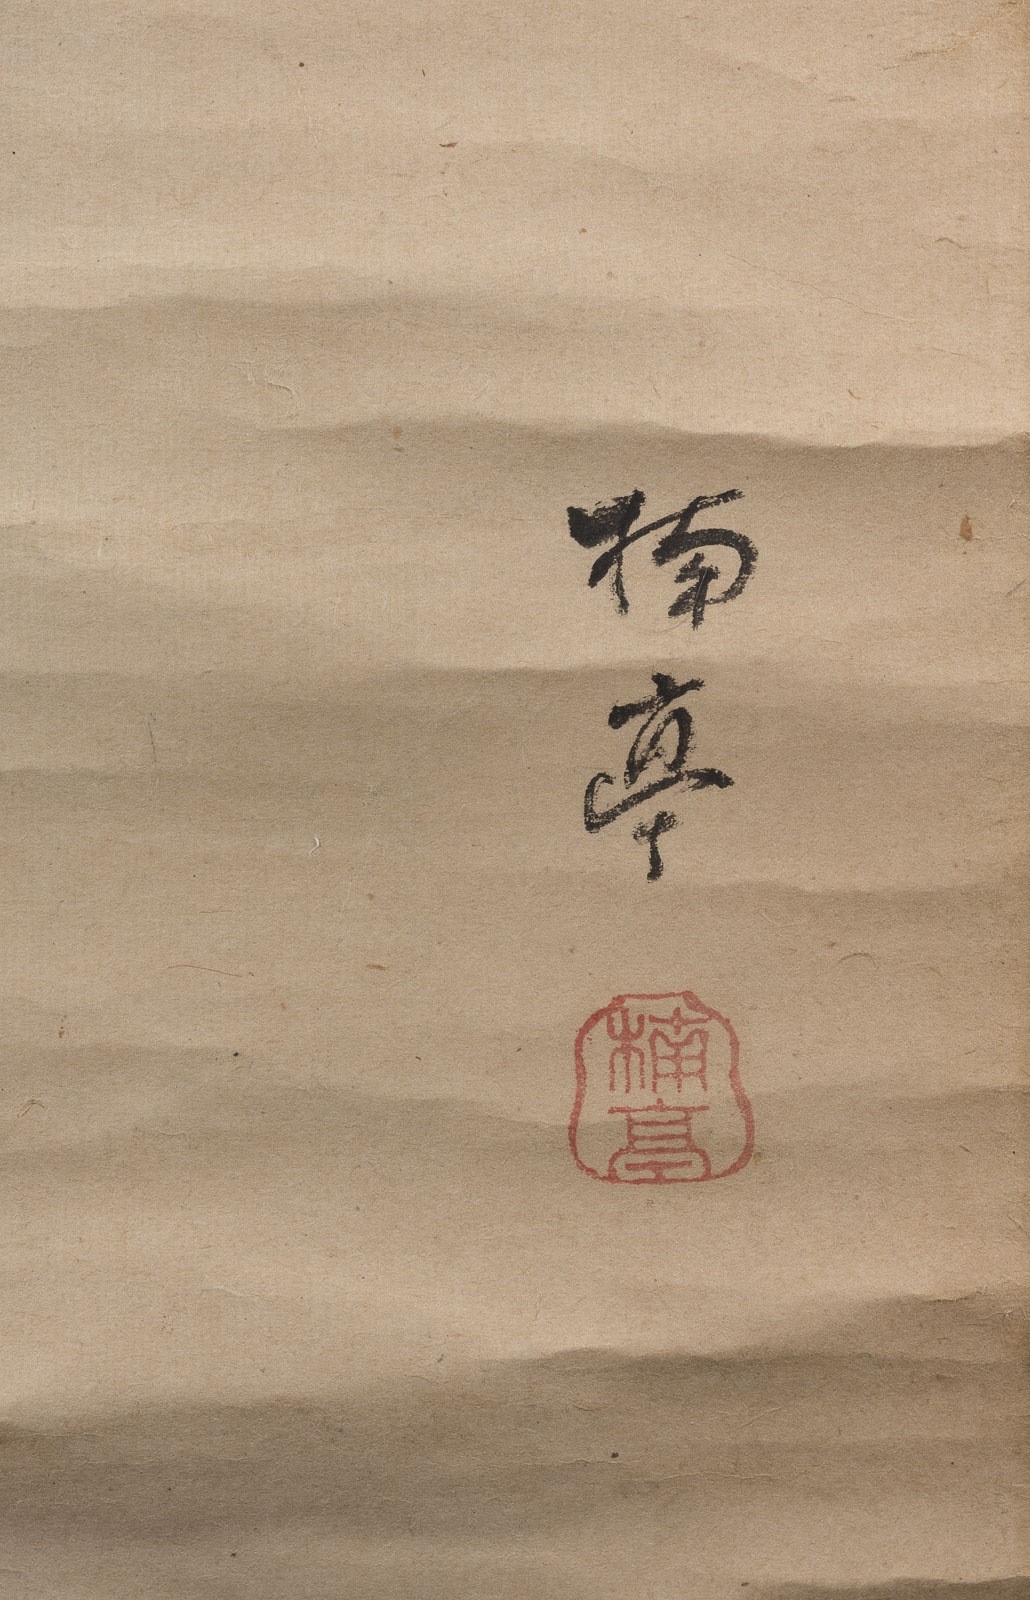 楠亭
楠亭